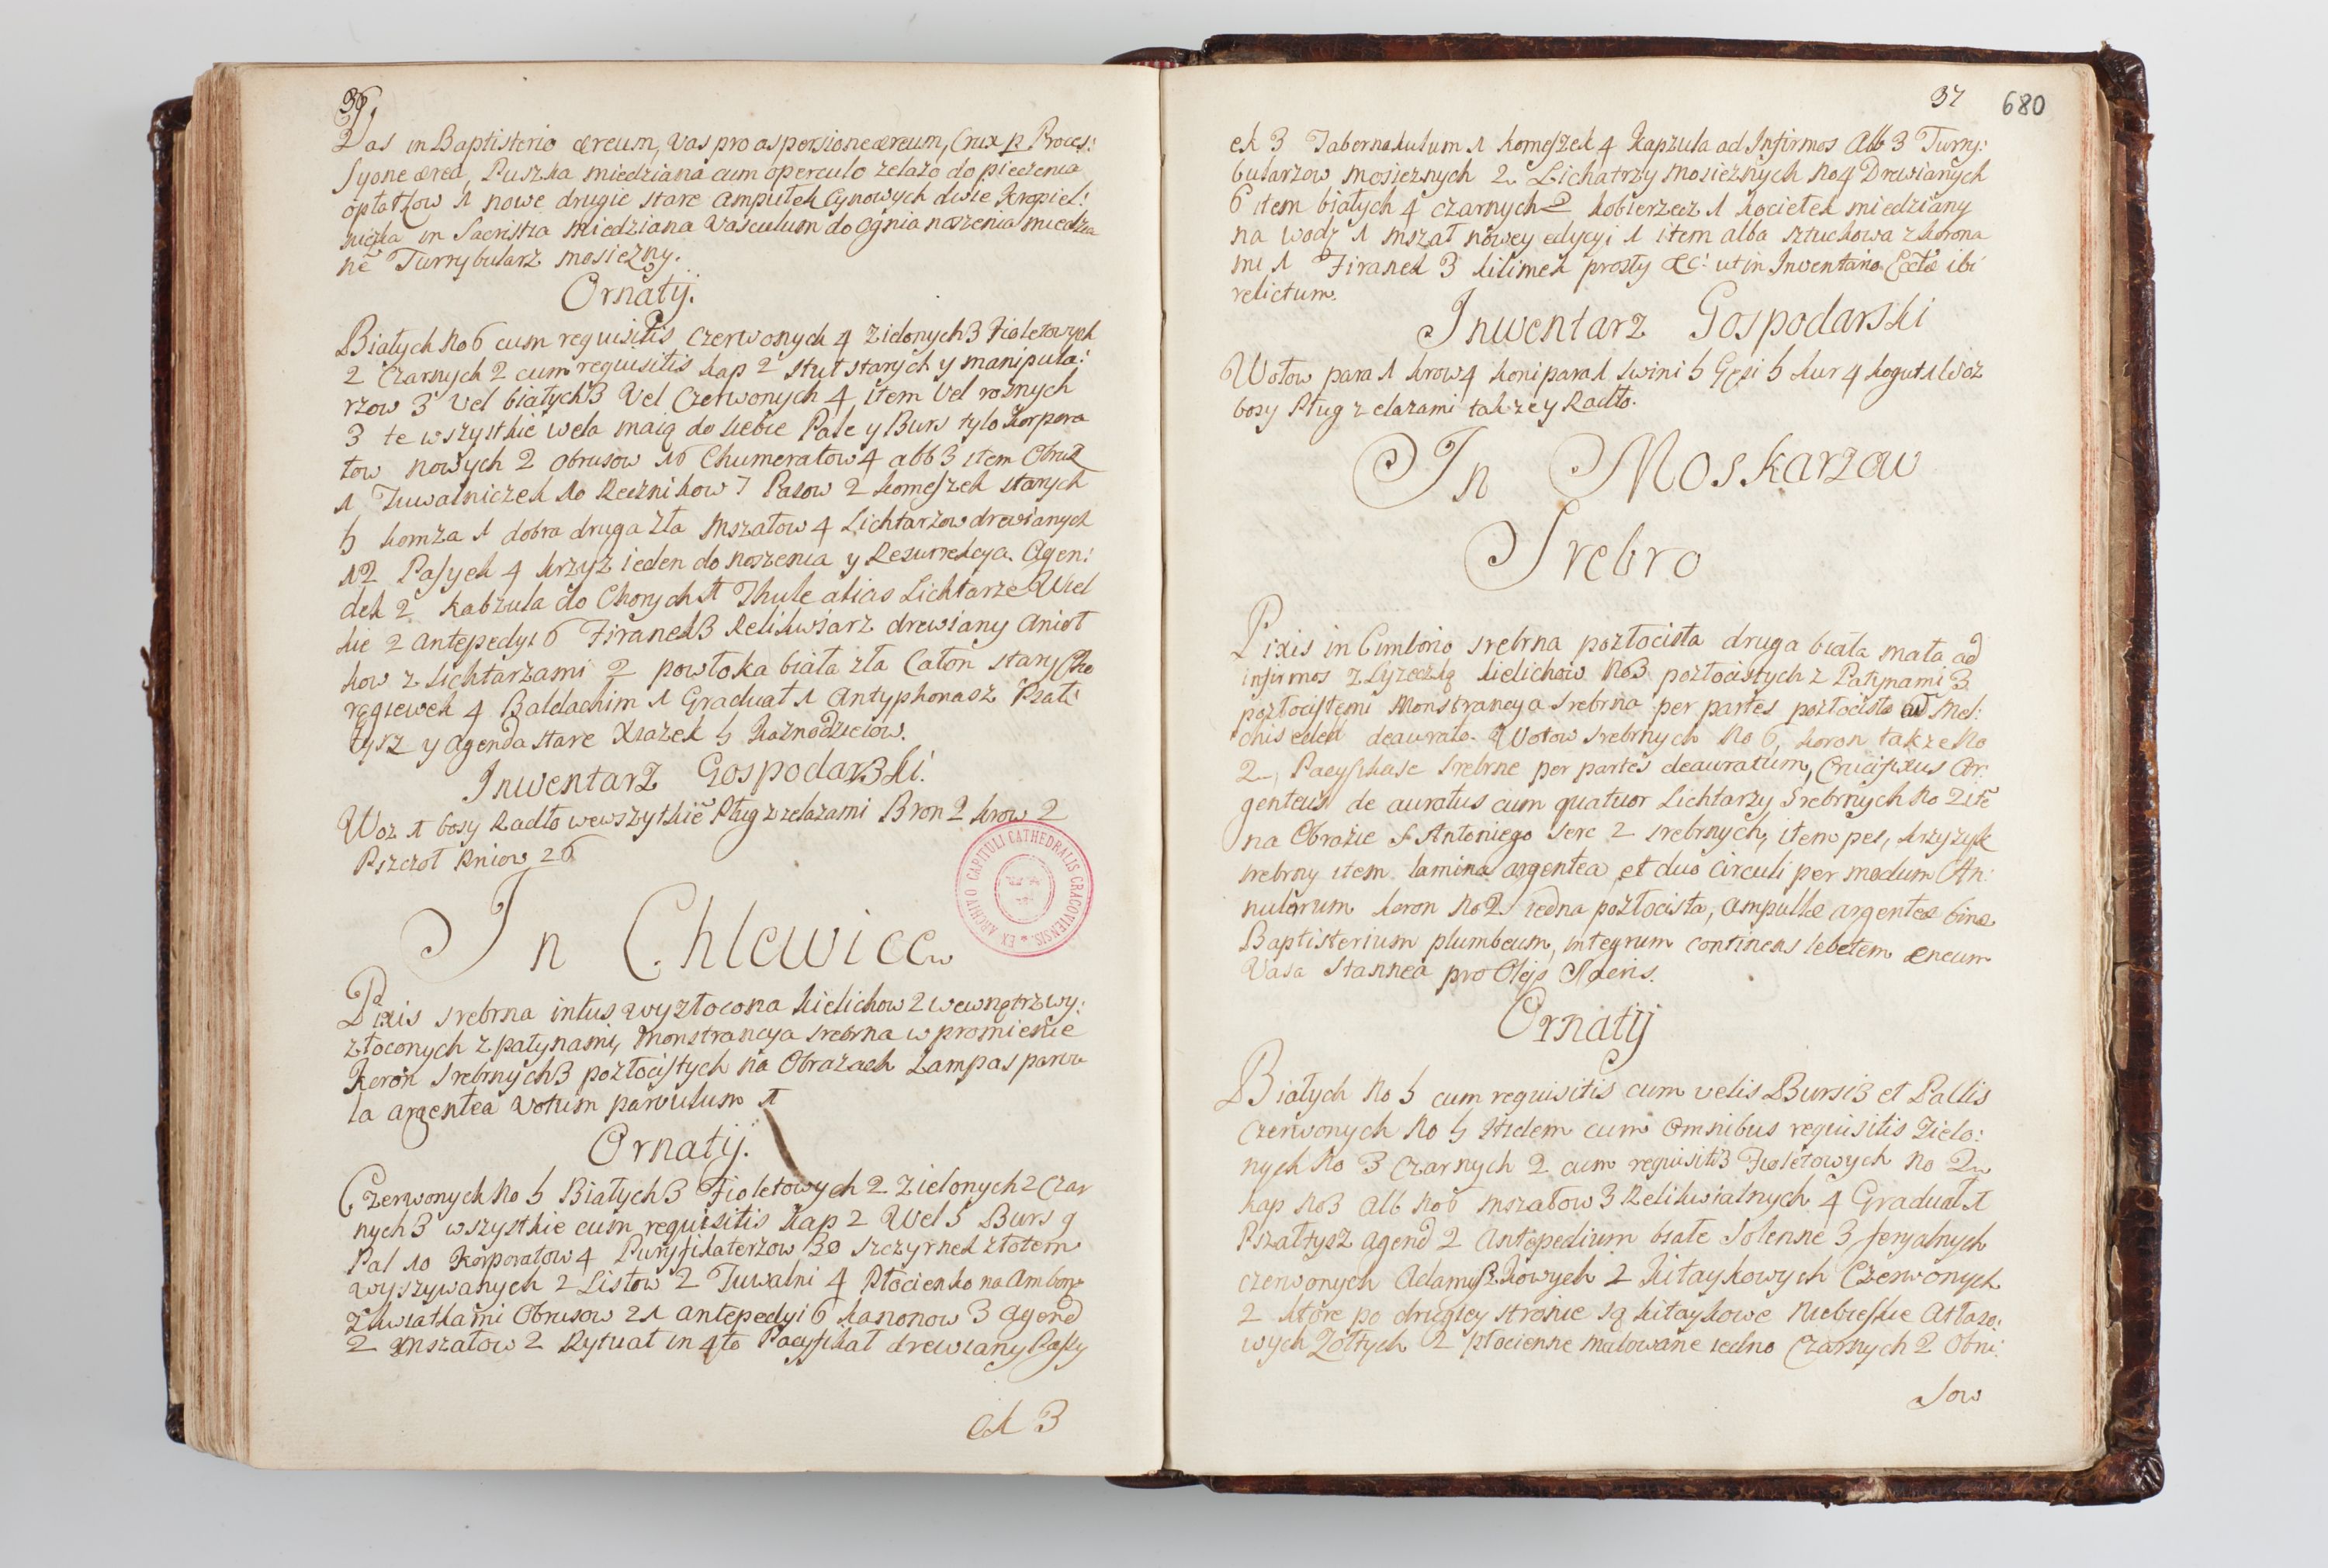 36.
Vas in Baptisterio æreum, Vas pro aspersione æreum, Crux p Proces:
syone ærea, Puszka miedziana cum operculo zelazo do pieczenia
opłatkow 1 nowe drugie stare ampułek Cynowych dwie Kropiel:
niczka in Sacristia miedziana Vasculum do ognia noszenia miedzia
ne Turrybularz mosiezny.
Ornaty.
Białych No 6 cum requisitis Czerwonych 4 Zielonych 3 Fioletowych
2 Czarnych 2 cum requisitis kap 2 stuł starych y manipula:
rzow 3 Vel białych 3 Vel Czerwonych 4 item Vel roznych
3 te wszystkie wela maią do siebie Pale y Burs tylo korpora
łow nowych 2 obrusow 16 Chumerałow 4 alb 3 item Obrus
1 Tuwalniczek 10 Ręcznikow 7 Pasow 2 komeszek starych
5 komza 1 dobra druga zła Mszałow 4 Lichtarzow drewianych
12 Pasyek 4 krzyz ieden do noszenia y Resurrekcya. Agen:
dek 2 Kabzula do Chorych 1 Thule alias Lichtarze Wiel
kie 2 antepedyi 6 Firanek 3 Relikwiarz drewiany Anioł
kow z Lichtarzami 2 powłoka biała zła Całon stary Cho
rągiewek 4 Baldachim 1 Graduał 1 Antyphonasz Psał:
tysz y agenda stare Xiązek 5 kaznodzieiow.
Inwentarz Gospodarski.
Woz 1 bosy Radło wewszytkie Pług z zelazami Bron 2 krow 2
Pszczoł Pniow 26
In Chlewice
EX ARCHIVO CAPITULI CATHEDRALIS CRACOVIENSIS
Pixis srebrna intus wyzłocona kielichow 2 wewnątrz wy:
złoconych z patynami, Monstrancya srebrna w promienie
Koron srebrnych 3 pozłocistych na Obrazach Lampas parvu
la argentea Votum parvulum 1
Ornaty.
Czerwonych No 5 Białych 3 Fioletowych 2 Zielonych 2 Czar
nych 3 wszystkie cum requisitis kap 2 Wel 5 Burs 9
Pal 10 Korporałow 4 Puryfikaterzow 30 szczyrnek złotem
wyszywanych 2 Listow 2 Tuwalni 4 Płocienko na Ambonę
z kwiatkami Obrusow 21 antepedyi 6 kanonow 3 agend
2 Mszałow 2 Rytuał in 4to Pacyfikał drewiany Pasy
ek 3
37
680
ek 3 Tabernakulum 1 komeszek 4 Kapzula ad Infirmos Alb 3 Turry:
bularzow mosieznych 2 Lichatrzy mosieznych No 4 Drewianych
6 item białych 4 czarnych 2 kobierzecz 1 kociełek miedziany
na wodę 1 mszał nowey edycyi 1 item alba sztuchowa z korona
mi 1 Firanek 3 kilimek prosty &c: ut in Inventario Ecclæ ibi
relictum.
Inwentarz Gospodarski
Wołow para 1 krow 4 koni para 1 swini 5 Gęsi 5 kur 4 kogut 1 Woz
bosy Pług z elazami takze y Radło.
In Moskarzow
Srebro
Pixis in Cimborio srebrna pozłocista druga biała mała ad
infirmos z Lyzeczką kielichow No 3 pozłocistych z Patynami 3
pozłocistemi Monstrancya srebrna per partes pozłocista ad Mel:
chisedech deaurato. Wotow srebrnych No 6, koron takze No
2, Pacyfikasc srebrne per partes deauratum, Crucifixus Ar:
genteus de auratus cum quatuor Lichtarzy srebrnych No 2 ite
na Obrazie S. Antoniego serc 2 srebrnych, item pes, krzyzyk
srebrny item lamina argentea et duo circuli per modum An:
nulorum koron No 2 iedna pozłocista, ampullæ argenteæ binæ
Baptisterium plumbeum, integrum continens lebetem æneum
Vasa stannea pro Olejs Sacris.
Ornaty
Białych No 5 cum requisitis cum velis Bursis et Pallis
Czerwonych No 5 itidem cum omnibus requisitis Zielo:
nych No 3 Czarnych 2 cum requisitis Fioletowych No 2
kap No 3 Alb No 6 mszałow 3 Relikwialnych 4 Graduał 1
Psałtysz agend 2 Antepedium białe Solenne 3 feryalnych
czerwonych Adamaszkowych 2 Kitaykowych Czerwonych
2 ktore po drugiey stronie są kitaykowe Niebieskie Atłaso:
wych Zołtych 2 płocienne malowane iedno Czarnych 2 Obru:
sow